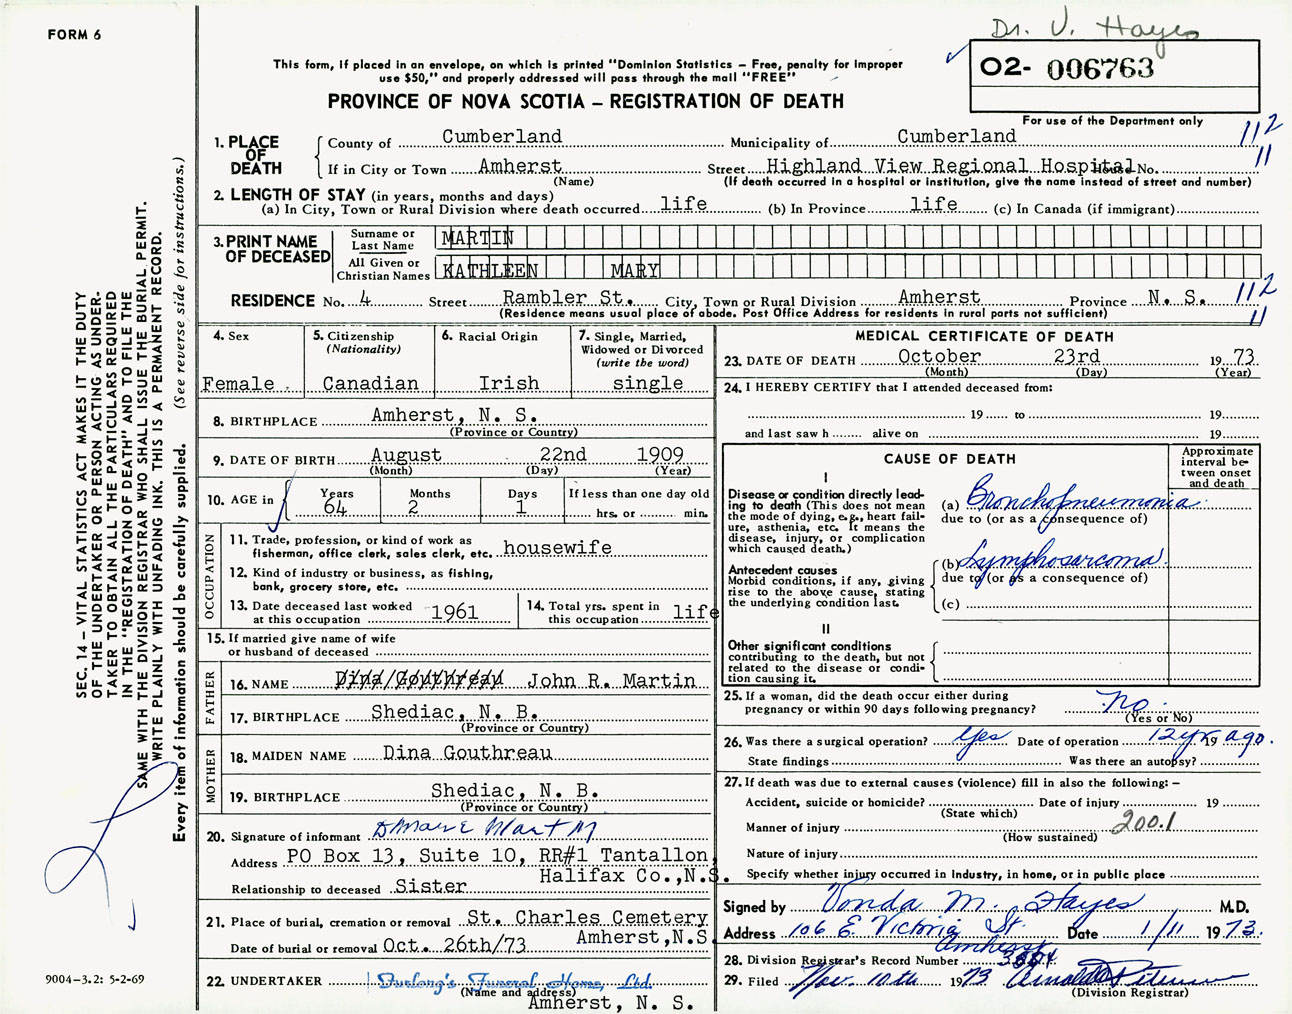 FORM 6
Dr. V. Hayes
02- 006763
For use of the Department only
This form, if placed in an envelope, on which is printed "Dominion Statistics – Free, penalty for improper
use $50," and properly addressed will pass through the mail "FREE"
PROVINCE OF NOVA SCOTIA – REGISTRATION OF DEATH
SEC. 14 – VITAL STATISTICS ACT MAKES IT THE DUTY
OF THE UNDERTAKER OR PERSON ACTING AS UNDER-
TAKER TO OBTAIN ALL THE PARTICULARS REQUIRED
IN THE "REGISTRATION OF DEATH" AND TO FILE THE
SAME WITH THE DIVISION REGISTRAR WHO SHALL ISSUE THE BURIAL PERMIT.
WRITE PLAINLY WITH UNFADING INK. THIS IS A PERMANENT RECORD.
Every item of information should be carefully supplied. (See reverse side for instructions.)
1. PLACE OF DEATH County of Cumberland Municipality of Cumberland 112
If in City or Town Amherst Street Highland View Regional Hospital House No. 11
(Name) (If death occurred in a hospital or institution, give the name instead of street and number)
2. LENGTH OF STAY (in years, months and days)
(a) In City, Town or Rural Division where death occurred life (b) In Province life (c) In Canada (if immigrant)
3. PRINT NAME OF DECEASED
Surname or Last Name MARTIN
All Given or Christian Names KATHLEEN MARY
RESIDENCE No. 4 Street Rambler St. City, Town or Rural Division Amherst Province N. S. 112
(Residence means usual place of abode. Post Office Address for residents in rural parts not sufficient) 11
4. Sex
Female
5. Citizenship (Nationality)
Canadian
6. Racial Origin
Irish
7. Single, Married, Widowed or Divorced (write the word)
single
8. BIRTHPLACE Amherst, N. S.
(Province or Country)
9. DATE OF BIRTH August 22nd 1909
(Month) (Day) (Year)
10. AGE in Years Months Days If less than one day old
64 2 1 hrs. or min.
OCCUPATION
11. Trade, profession, or kind of work as
fisherman, office clerk, sales clerk, etc. housewife
12. Kind of industry or business, as fishing,
bank, grocery store, etc.
13. Date deceased last worked at this occupation 1961
14. Total yrs. spent in this occupation life
15. If married give name of wife
or husband of deceased
FATHER
16. NAME Dina Gouthreau John R. Martin
17. BIRTHPLACE Shediac, N. B.
(Province or Country)
MOTHER
18. MAIDEN NAME Dina Gouthreau
19. BIRTHPLACE Shediac, N. B.
(Province or Country)
20. Signature of informant
Address PO Box 13, Suite 10, RR#1 Tantallon,
Halifax Co., N.S.
Relationship to deceased Sister
21. Place of burial, cremation or removal St. Charles Cemetery
Date of burial or removal Oct. 26th/73 Amherst, N.S.
22. UNDERTAKER Furlong's Funeral Home, Ltd.
(Name and address)
Amherst, N. S.
MEDICAL CERTIFICATE OF DEATH
23. DATE OF DEATH October 23rd 1973
(Month) (Day) (Year)
24. I HEREBY CERTIFY that I attended deceased from:
19 to 19
and last saw h alive on 19
CAUSE OF DEATH
Approximate interval between onset and death
I
Disease or condition directly lead-
ing to death (This does not mean
the mode of dying, e.g., heart fail-
ure, asthenia, etc. It means the
disease, injury, or complication
which caused death.)
(a) Bronchopneumonia
due to (or as a consequence of)
Antecedent causes
Morbid conditions, if any, giving
rise to the above cause, stating
the underlying condition last.
(b) Lymphosarcoma
due to (or as a consequence of)
(c)
II
Other significant conditions
contributing to the death, but not
related to the disease or condi-
tion causing it.
25. If a woman, did the death occur either during
pregnancy or within 90 days following pregnancy? no
(Yes or No)
26. Was there a surgical operation? Yes Date of operation 12 yrs 19 ago.
State findings Was there an autopsy?
27. If death was due to external causes (violence) fill in also the following: –
Accident, suicide or homicide? Date of injury 19
(State which)
Manner of injury 200.1
(How sustained)
Nature of injury
Specify whether injury occurred in industry, in home, or in public place
Signed by Vonda M. Hayes M.D.
Address 106 E Victoria St. Amherst Date 1/11 1973.
28. Division Registrar's Record Number
29. Filed Nov. 10th 1973
(Division Registrar)
9004-3.2: 5-2-69